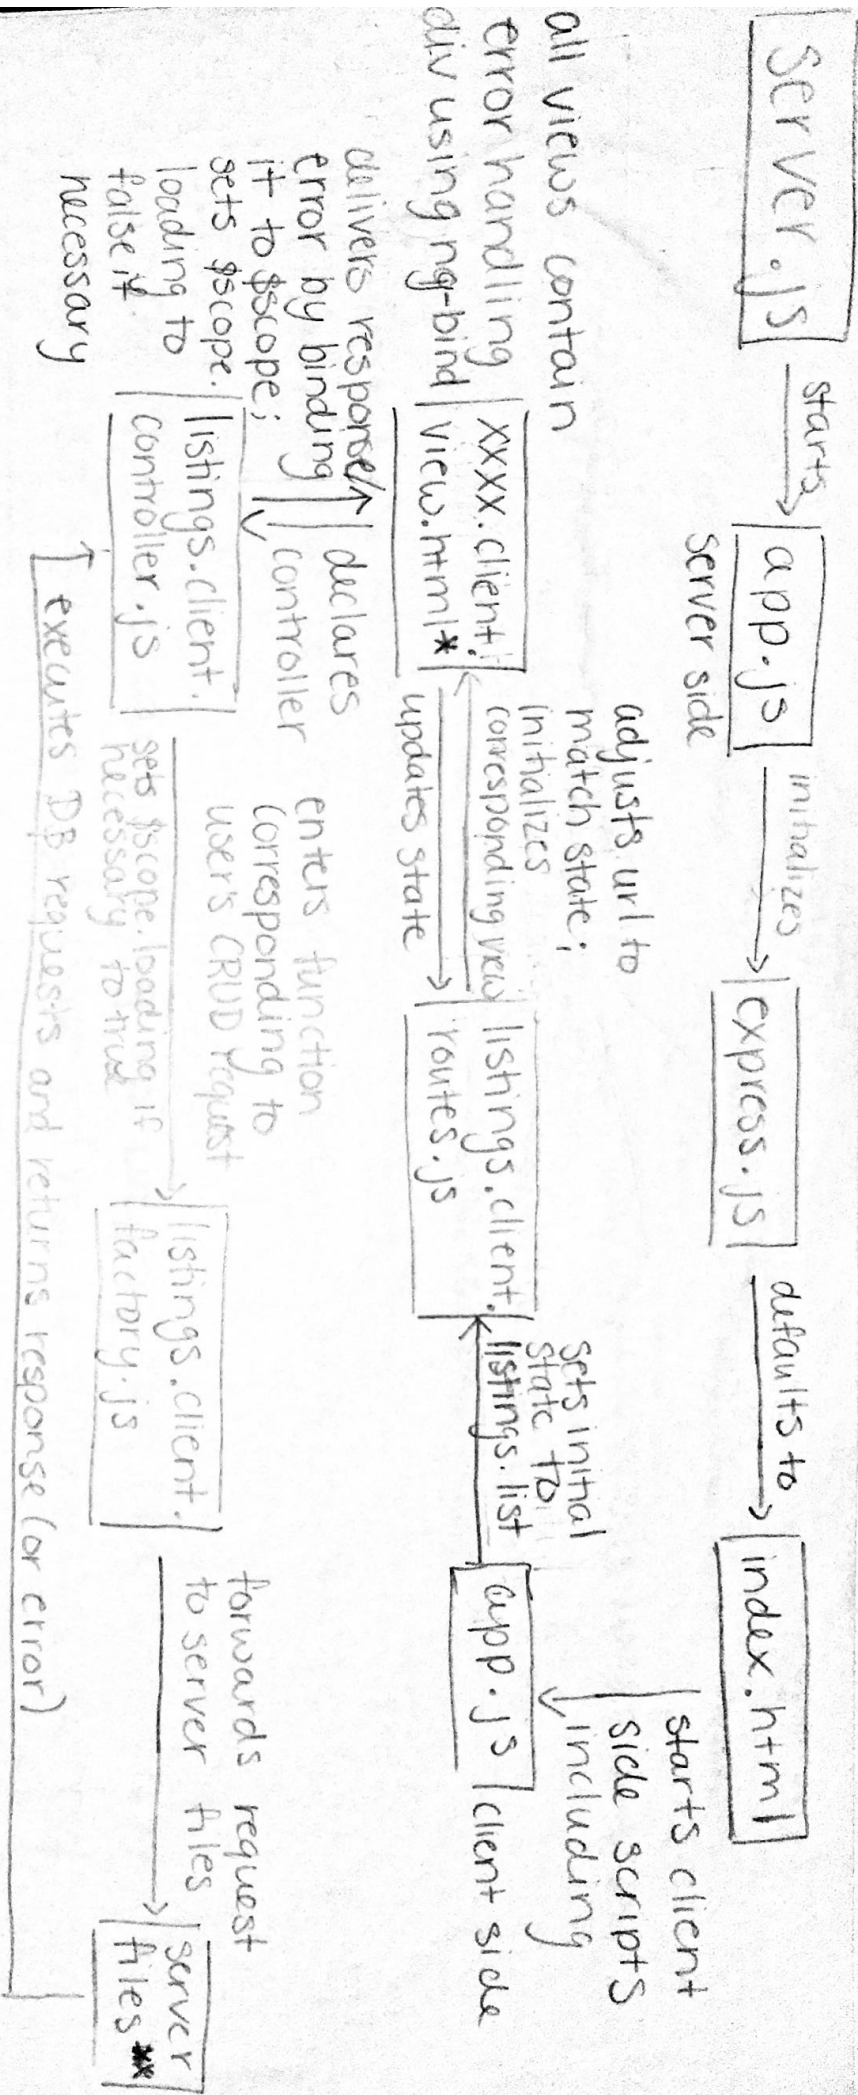 server.js
starts
app.js
server side
initializes
express.js
defaults to
index.html
starts client
side scripts
including
app.js
client side
sets initial
state to
listings.list
listings.client.
routes.js
adjusts url to
match state;
initializes
corresponding view
updates state
xxxx.client.
view.html*
all views contain
error handling
div using ng-bind
declares
controller
delivers response/
error by binding
it to $scope;
sets $scope.
loading to
false if
necessary
listings.client.
controller.js
enters function
corresponding to
users CRUD request
sets $scope.loading if
necessary to true
listings.client.
factory.js
forwards request
to server files
server
files**
executes DB requests and returns response (or error)